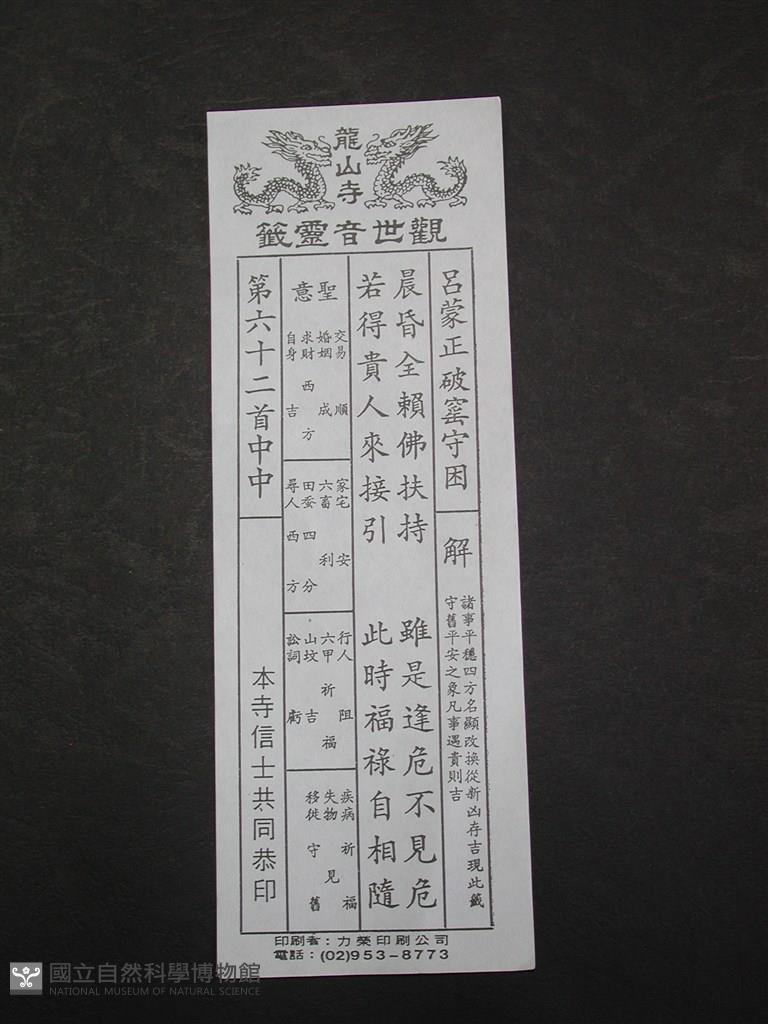 龍山寺
觀世音靈籤
呂蒙正破窰守困
解
諸事平穩四方名顯改換從新凶存吉現此籤
守舊平安之象凡事遇貴則吉
晨昏全賴佛扶持 雖是逢危不見危
若得貴人來接引 此時福祿自相隨
聖意
交易 順
婚姻 成
求財 西方
自身 吉
家宅 安
六畜 利
田蚕 四分
尋人 西方
行人 阻
六甲 祈福
山坟 吉
訟詞 虧
疾病 祈福
失物 見
移徙 守舊
第六十二首中中
本寺信士共同恭印
印刷者：力榮印刷公司
電話：(02)953-8773
國立自然科學博物館
NATIONAL MUSEUM OF NATURAL SCIENCE